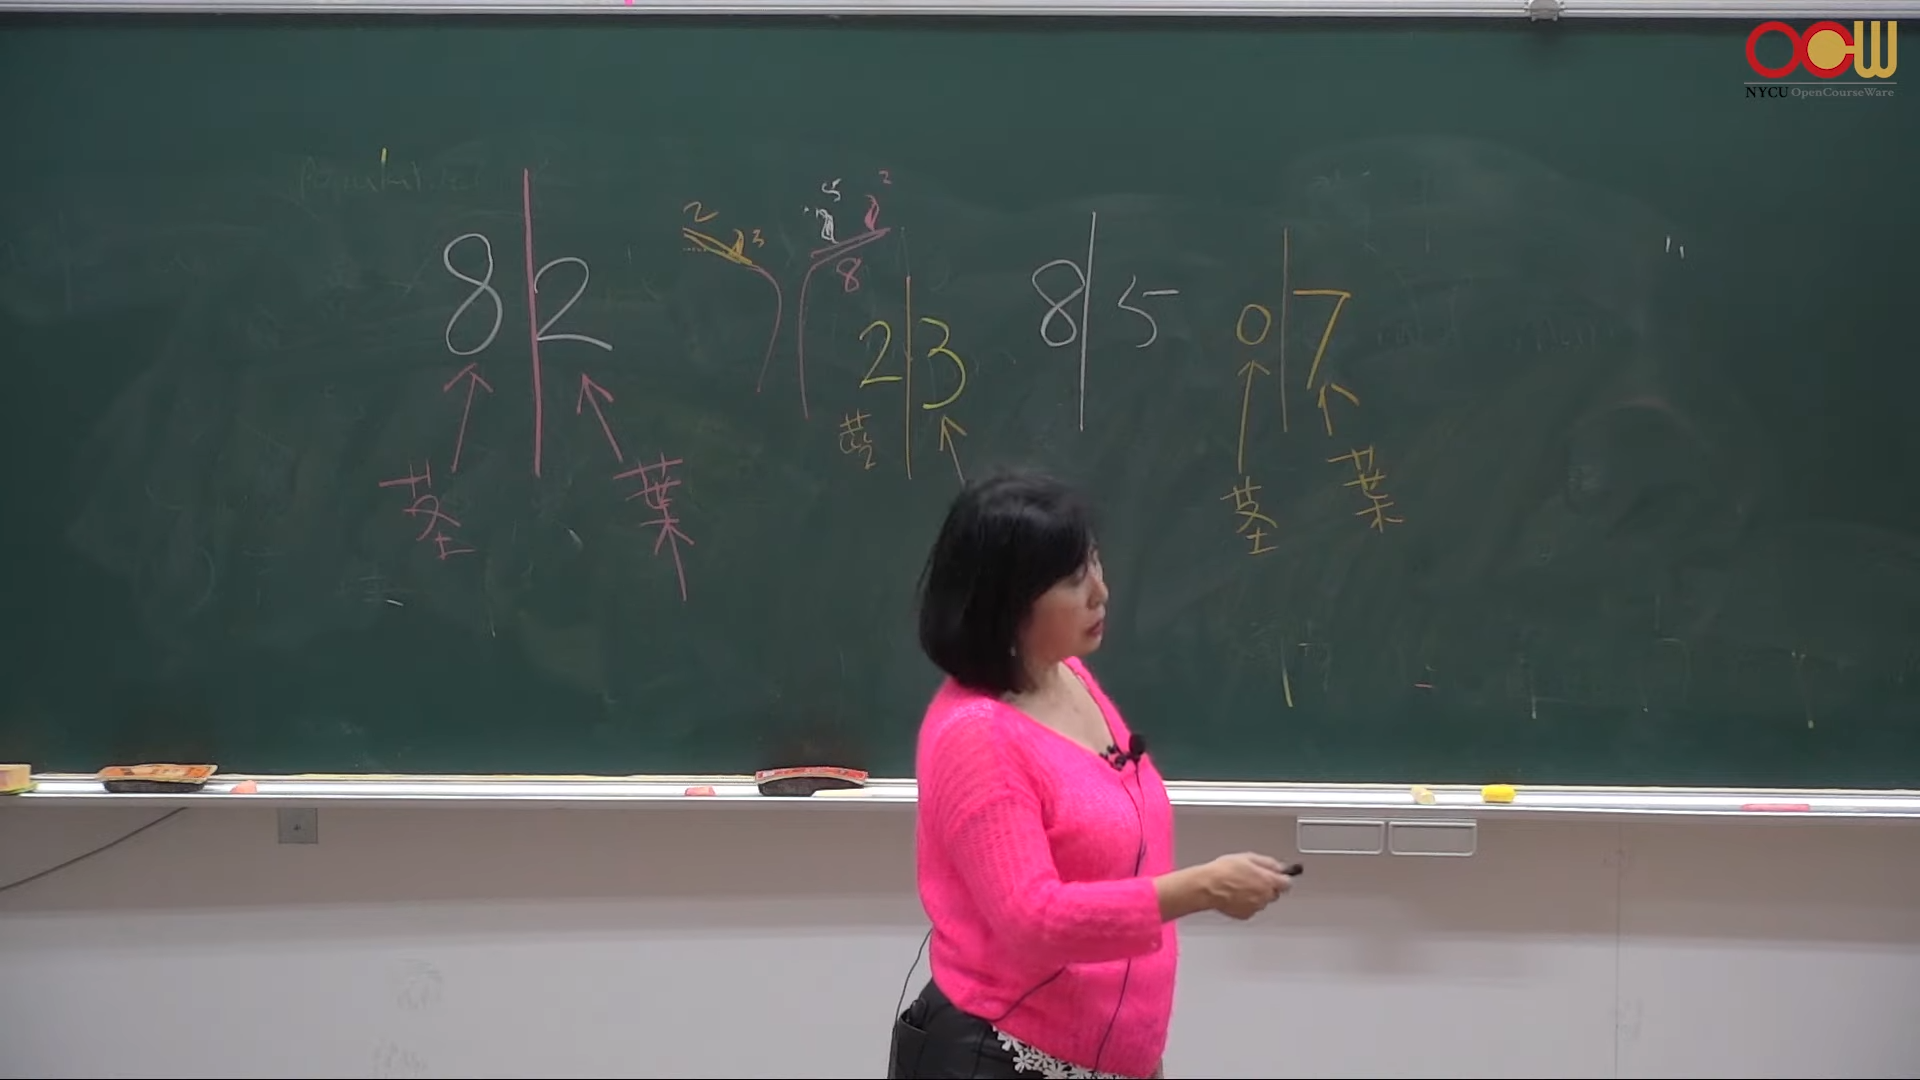 OCW
NYCU OpenCourseWare
8 | 2
2 3
5 2
8
2 | 3
8 | 5
0 | 7
莖 葉
莖
莖 葉